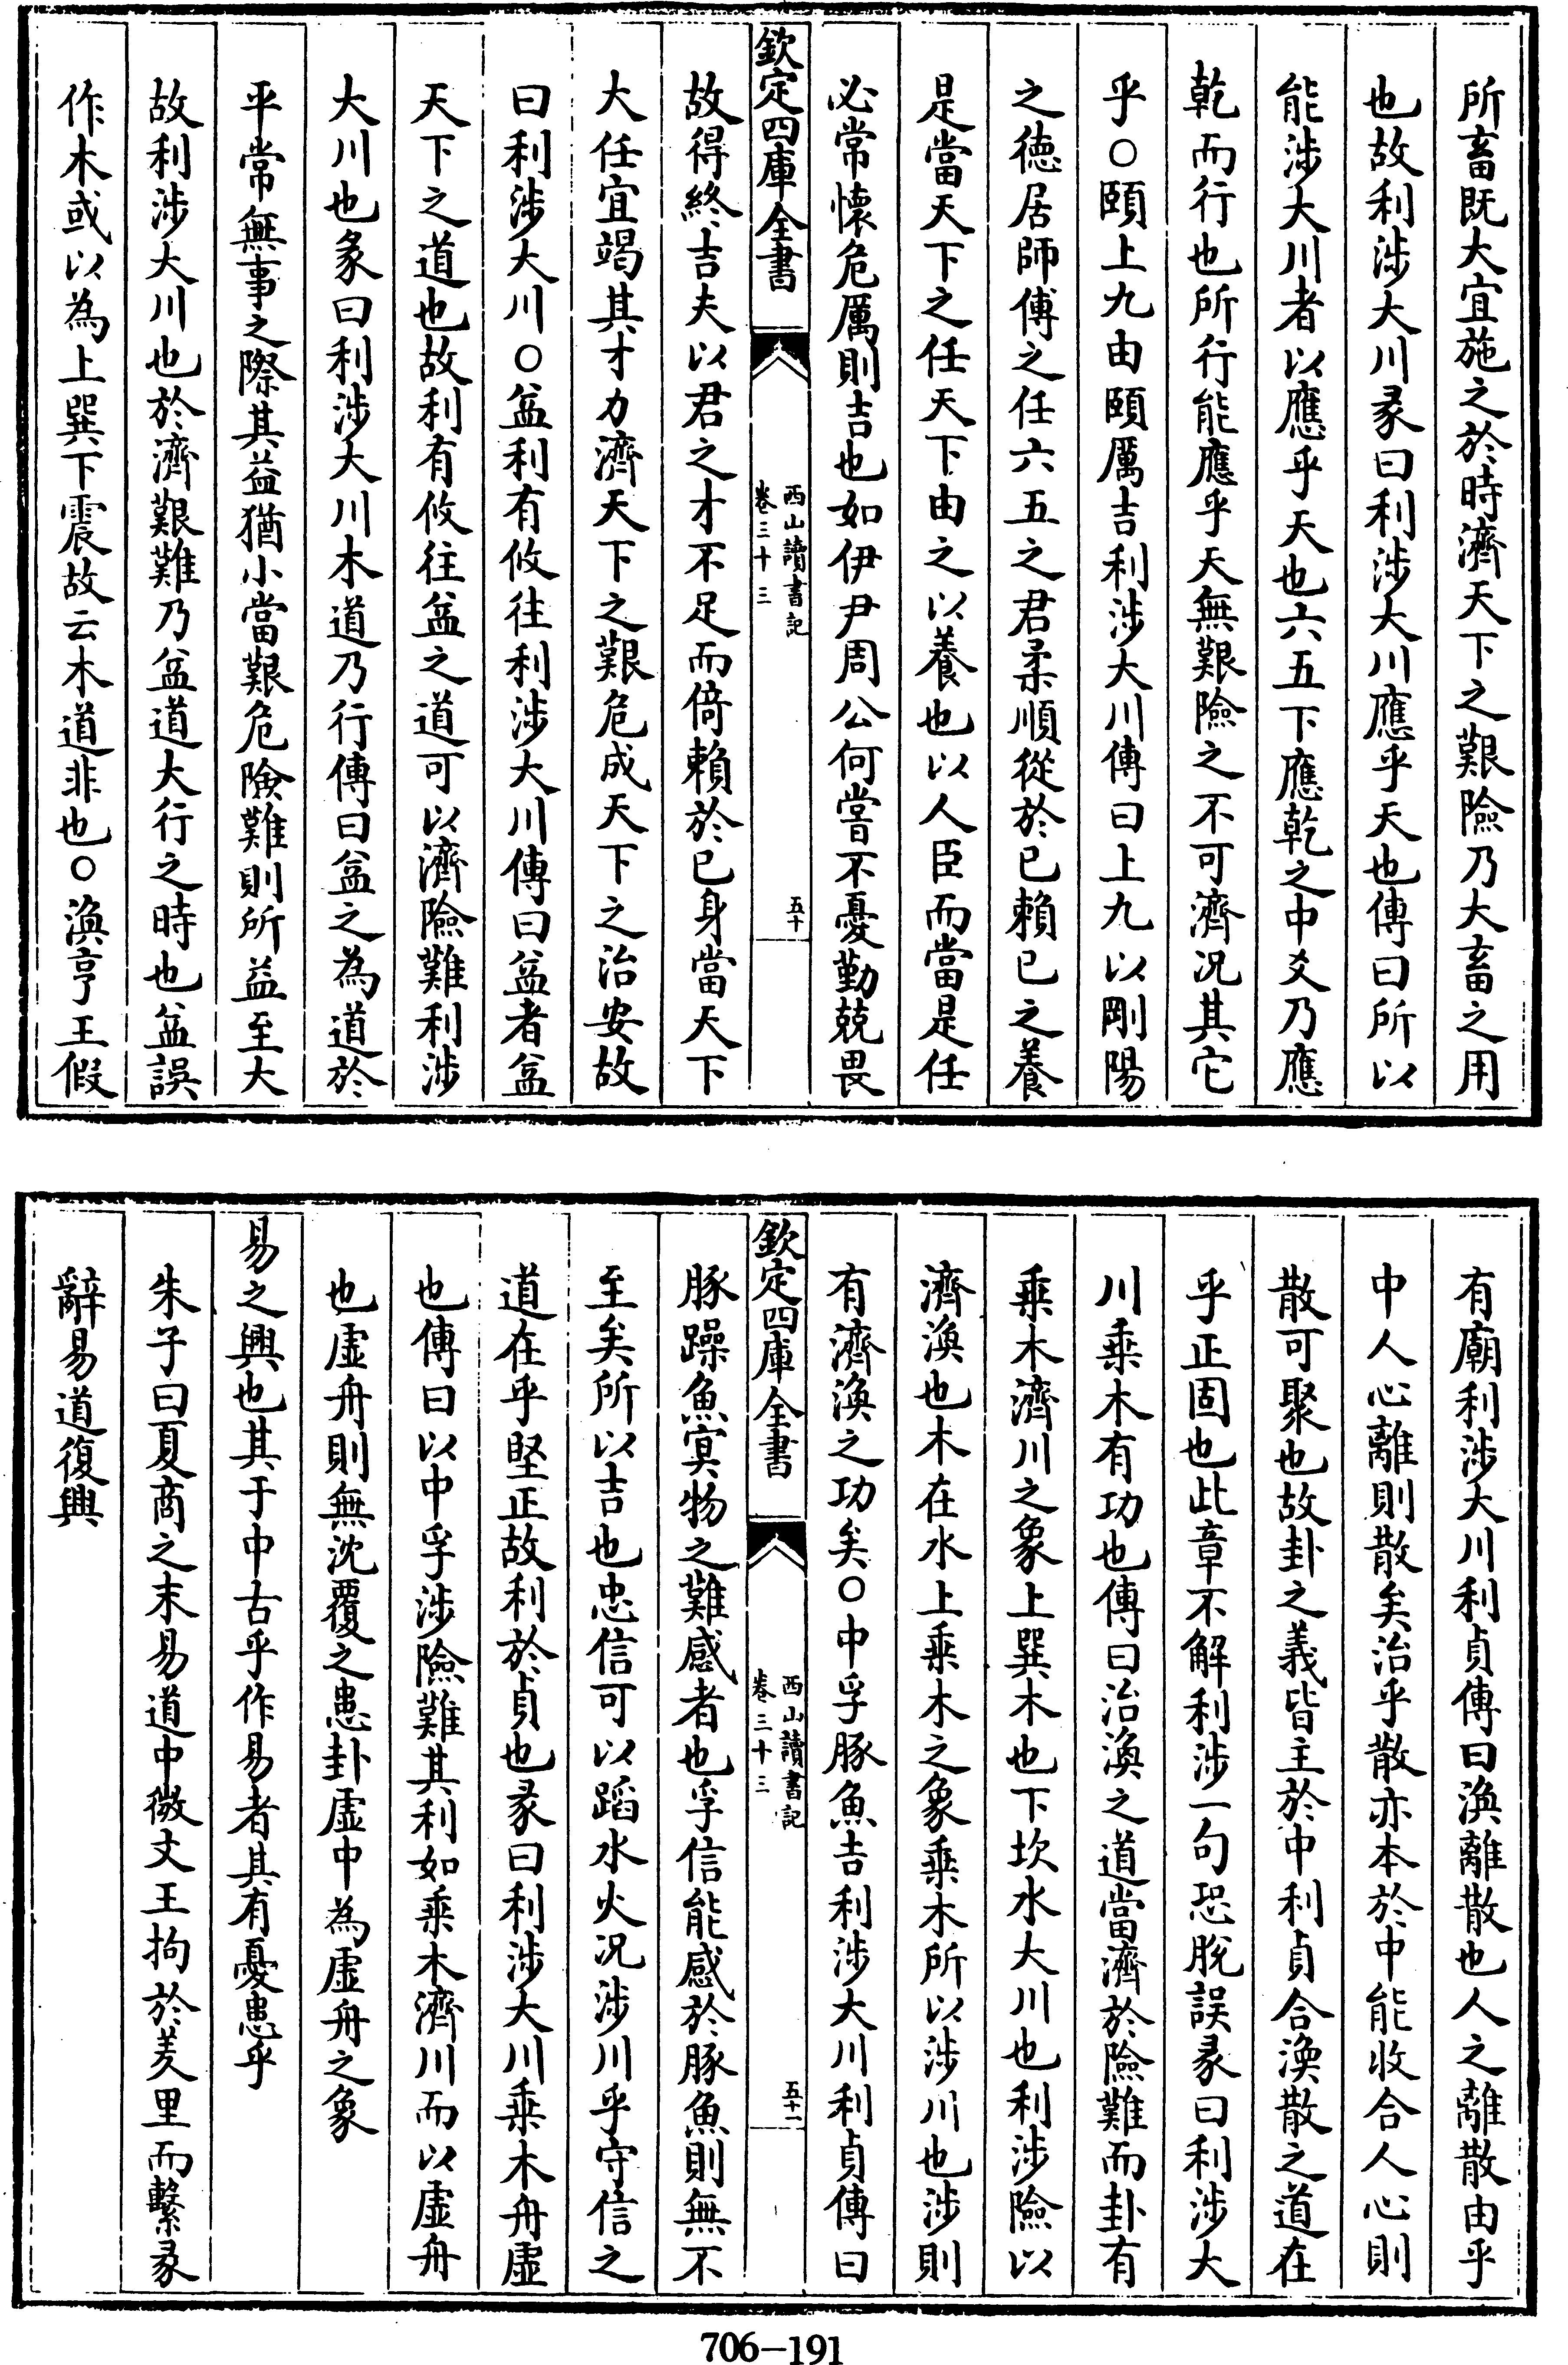 所畜既大宜施之於時濟天下之艱險乃大畜之用
也故利涉大川彖曰利涉大川應乎天也傳曰所以
能涉大川者以應乎天也六五下應乾之中爻乃應
乾而行也所行能應乎天無艱險之不可濟况其它
乎○頤上九由頤厲吉利涉大川傳曰上九以剛陽
之徳居師傅之任六五之君柔順從於已賴已之養
是當天下之任天下由之以養也以人臣而當是任
必常懷危厲則吉也如伊尹周公何嘗不憂勤兢畏
欽定四庫全書
西山讀書記
卷三十三
五十
故得終吉夫以君之才不足而倚賴於已身當天下
大任宜竭其才力濟天下之艱危成天下之治安故
曰利涉大川○益利有攸往利涉大川傳曰益者益
天下之道也故利有攸往益之道可以濟險難利涉
大川也彖曰利涉大川木道乃行傳曰益之為道於
平常無事之際其益猶小當艱危險難則所益至大
故利涉大川也於濟艱難乃益道大行之時也益誤
作木或以為上巽下震故云木道非也○渙亨王假
有廟利涉大川利貞傳曰渙離散也人之離散由乎
中人心離則散矣治乎散亦本於中能收合人心則
散可聚也故卦之義皆主於中利貞合渙散之道在
乎正固也此章不解利涉一句恐脫誤彖曰利涉大
川乗木有功也傳曰治渙之道當濟於險難而卦有
乗木濟川之象上巽木也下坎水大川也利涉險以
濟渙也木在水上乗木之象乗木所以涉川也涉則
有濟渙之功矣○中孚豚魚吉利涉大川利貞傳曰
欽定四庫全書
西山讀書記
卷三十三
五十一
豚躁魚冥物之難感者也孚信能感於豚魚則無不
至矣所以吉也忠信可以蹈水火况涉川乎守信之
道在乎堅正故利於貞也彖曰利涉大川乗木舟虛
也傳曰以中孚涉險難其利如乗木濟川而以虛舟
也虛舟則無沈覆之患卦虛中為虛舟之象
易之興也其于中古乎作易者其有憂患乎
朱子曰夏商之末易道中微文王拘於羑里而繫彖
辭易道復興
706-191